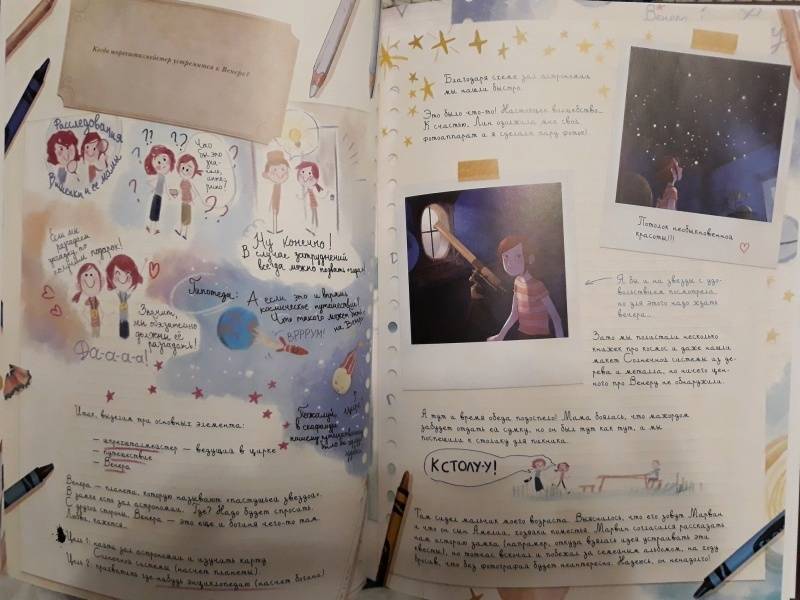 Когда шпрехшталмейстер устремится к Венере?
Расследования
Вишенки и её мамы
Что
бы это
зна-
чило,
Ну конечно!
В случае затруднений
всегда можно позвать гидов!
Если мы
разгадаем
загадку, то
получим подарок!
Значит,
мы обязательно
должны её
разгадать!
Да-а-а-а!
Гипотеза:
А если это и впрямь
космическое путешествие?
Что такого может быть
на Венере?
ВРРРУМ!
Пожалуй,
в скафандре
Итак, выделим три основных элемента:
— шпрехшталмейстер — ведущий в цирке
— путешествие
— Венера
Венера — планета, которую называют «пастушьей звездой».
В замке есть зал астрономии. Где? Надо будет спросить.
С другой стороны, Венера — это ещё и богиня чего-то там.
Любви, кажется.
Цель 1: найти зал астрономии и изучить карту
Солнечной системы (насчёт планеты).
Цель 2: прихватить где-нибудь энциклопедию (насчёт богини).
Венеры!
Благодаря схеме зал астрономии
мы нашли быстро.
Это было что-то! Настоящее волшебство...
К счастью, Лин одолжила мне свой
фотоаппарат и я сделала пару фоток!
Потолок необыкновенной
красоты!!!
Я бы и на звёзды с удо-
вольствием посмотрела,
но для этого надо ждать
вечера...
Зато мы полистали несколько
книжек про космос и даже нашли
макет Солнечной системы из де-
рева и металла, но ничего цен-
ного про Венеру не обнаружили.
А тут и время обеда подоспело! Мама боялась, что мажордом
забудет отдать ей сумку, но он был тут как тут, и мы
поспешили к столику для пикника.
К СТОЛУ-У!
Там сидел мальчик моего возраста. Выяснилось, что его зовут Марван
и что он сын Амелии, хозяйки поместья. Марван согласился рассказать
нам историю замка (например, откуда взялась идея устраивать эти
квесты), но тотчас вскочил и побежал за семейным альбомом, на ходу
бросив, что без фотографий будет неинтересно. Надеюсь, он ненадолго!